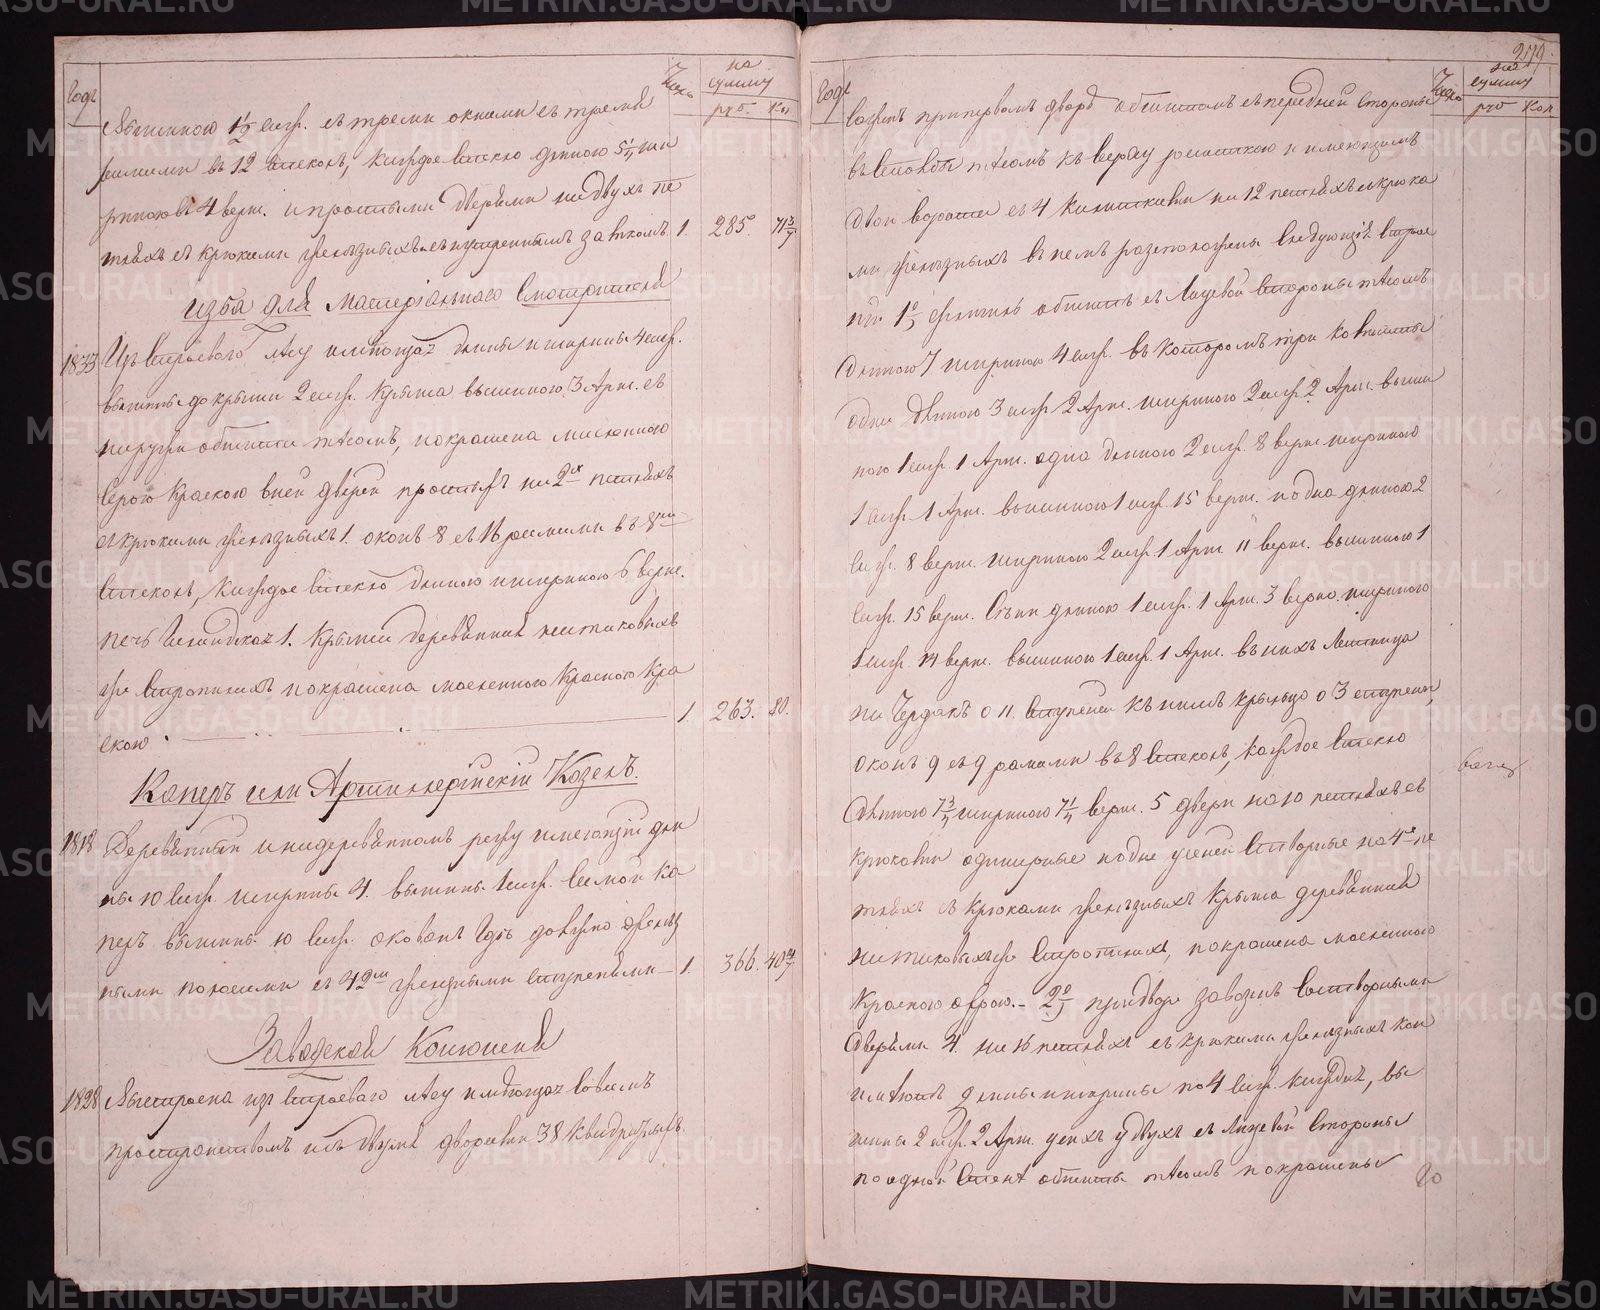 Годъ
Число
на сумму
руб. коп
вышиною 1 1/2 саж. съ тремя окнами съ тремя
рамами въ 12 стеколъ, каждое стекло длиною 5 1/4 ши
риною въ 4 верш. и простыми дверями на двухъ пе
тляхъ съ крюками желѣзныхъ съ нутреннымъ замкомъ 1. 285. 71 3/7
изба для матеріальнаго Смотрителя
1833 Изъ строеваго лѣсу имѣющая длины и ширины 4 саж.
вышины до крыши 2 саж. крыша вышиною 3 Арш. съ
наружи обшита тѣсомъ, покрашена масленною
серою краскою въ ней дверей простыхъ на 2хъ петляхъ
съ крюками желѣзныхъ 1. оконъ 8 съ 16 рамами въ 8ми
стеколъ, каждое стекло длиною и шириною 6 верш.
печь Исландская 1. Крыша деревянная на таковыхъ
же стропилахъ покрашена масленною красною кра
скою 1. 263. 80.
Коперъ или Артиллерійскій Козелъ.
1818 Деревянный и на деревянномъ режу имѣющій дли
ны 10 саж. ширины 4. вышины 1 саж. самой ко
перъ вышины 10 саж. окованъ гдѣ должно желѣз
ными полосами съ 42мя желѣзными ступенями 1. 366. 40
Заводской Конюшни
1828 Выстроена изъ строеваго лѣсу имѣющая совсемъ
пространствомъ и съ двумя дворами 38 квадратныхъ
279.
Годъ
Число
на сумму
руб коп.
сажень при первомъ дворѣ обшитомъ съ передней стороны
въ столбы тѣсомъ къ верху решеткою и имеющимъ
двои вороты съ 4 калитками на 12 петляхъ и крюка
ми желѣзныхъ въ немъ расположены следующія строе
нія 1е флигель обшитъ съ Лицевой стороны тѣсомъ
длиною 7 шириною 4 саж. въ которомъ три комнаты
одна длиною 3 саж 2 Арш. шириною 2 саж. 2 Арш. выши
ною 1 саж. 1 Арш. одна длиною 2 саж. 8 верш. шириною
1 саж. 1 Арш. вышиною 1 саж. 15 верш. и одна длиною 2
саж. 8 верш. шириною 2 саж. 1 Арш 11 верш. вышиною 1
саж. 15 верш. Сѣни длиною 1 саж. 1 Арш. 3 верш. шириною
1 саж. 14 верш. вышиною 1 саж. 1 Арш. въ нихъ Лестница
на Чердакъ о 11. ступеней къ нимъ крыльцо о 3 ступеняхъ,
оконъ 9 съ 9 рамами въ 8 стеколъ, каждое стекло
длиною 7 3/4 шириною 7 1/4 верш. 5 двери на 10 петляхъ съ
крюками одинарные и одне сеней створные на 4хъ пе
тляхъ съ крюками желѣзныхъ Крыша деревянная
на таковыхъ же стропилахъ, покрашена масленною
красною охрою. – 2е при дворѣ завозня со створными
дверями 4. на 16 петляхъ съ крюками желѣзныхъ кои
имѣютъ длины и ширины по 4 саж. каждая, вы
шины 2 саж. 2 Арш. у нихъ у двухъ съ Лицевой стороны
по одной стенѣ обшиты тѣсомъ покрашены